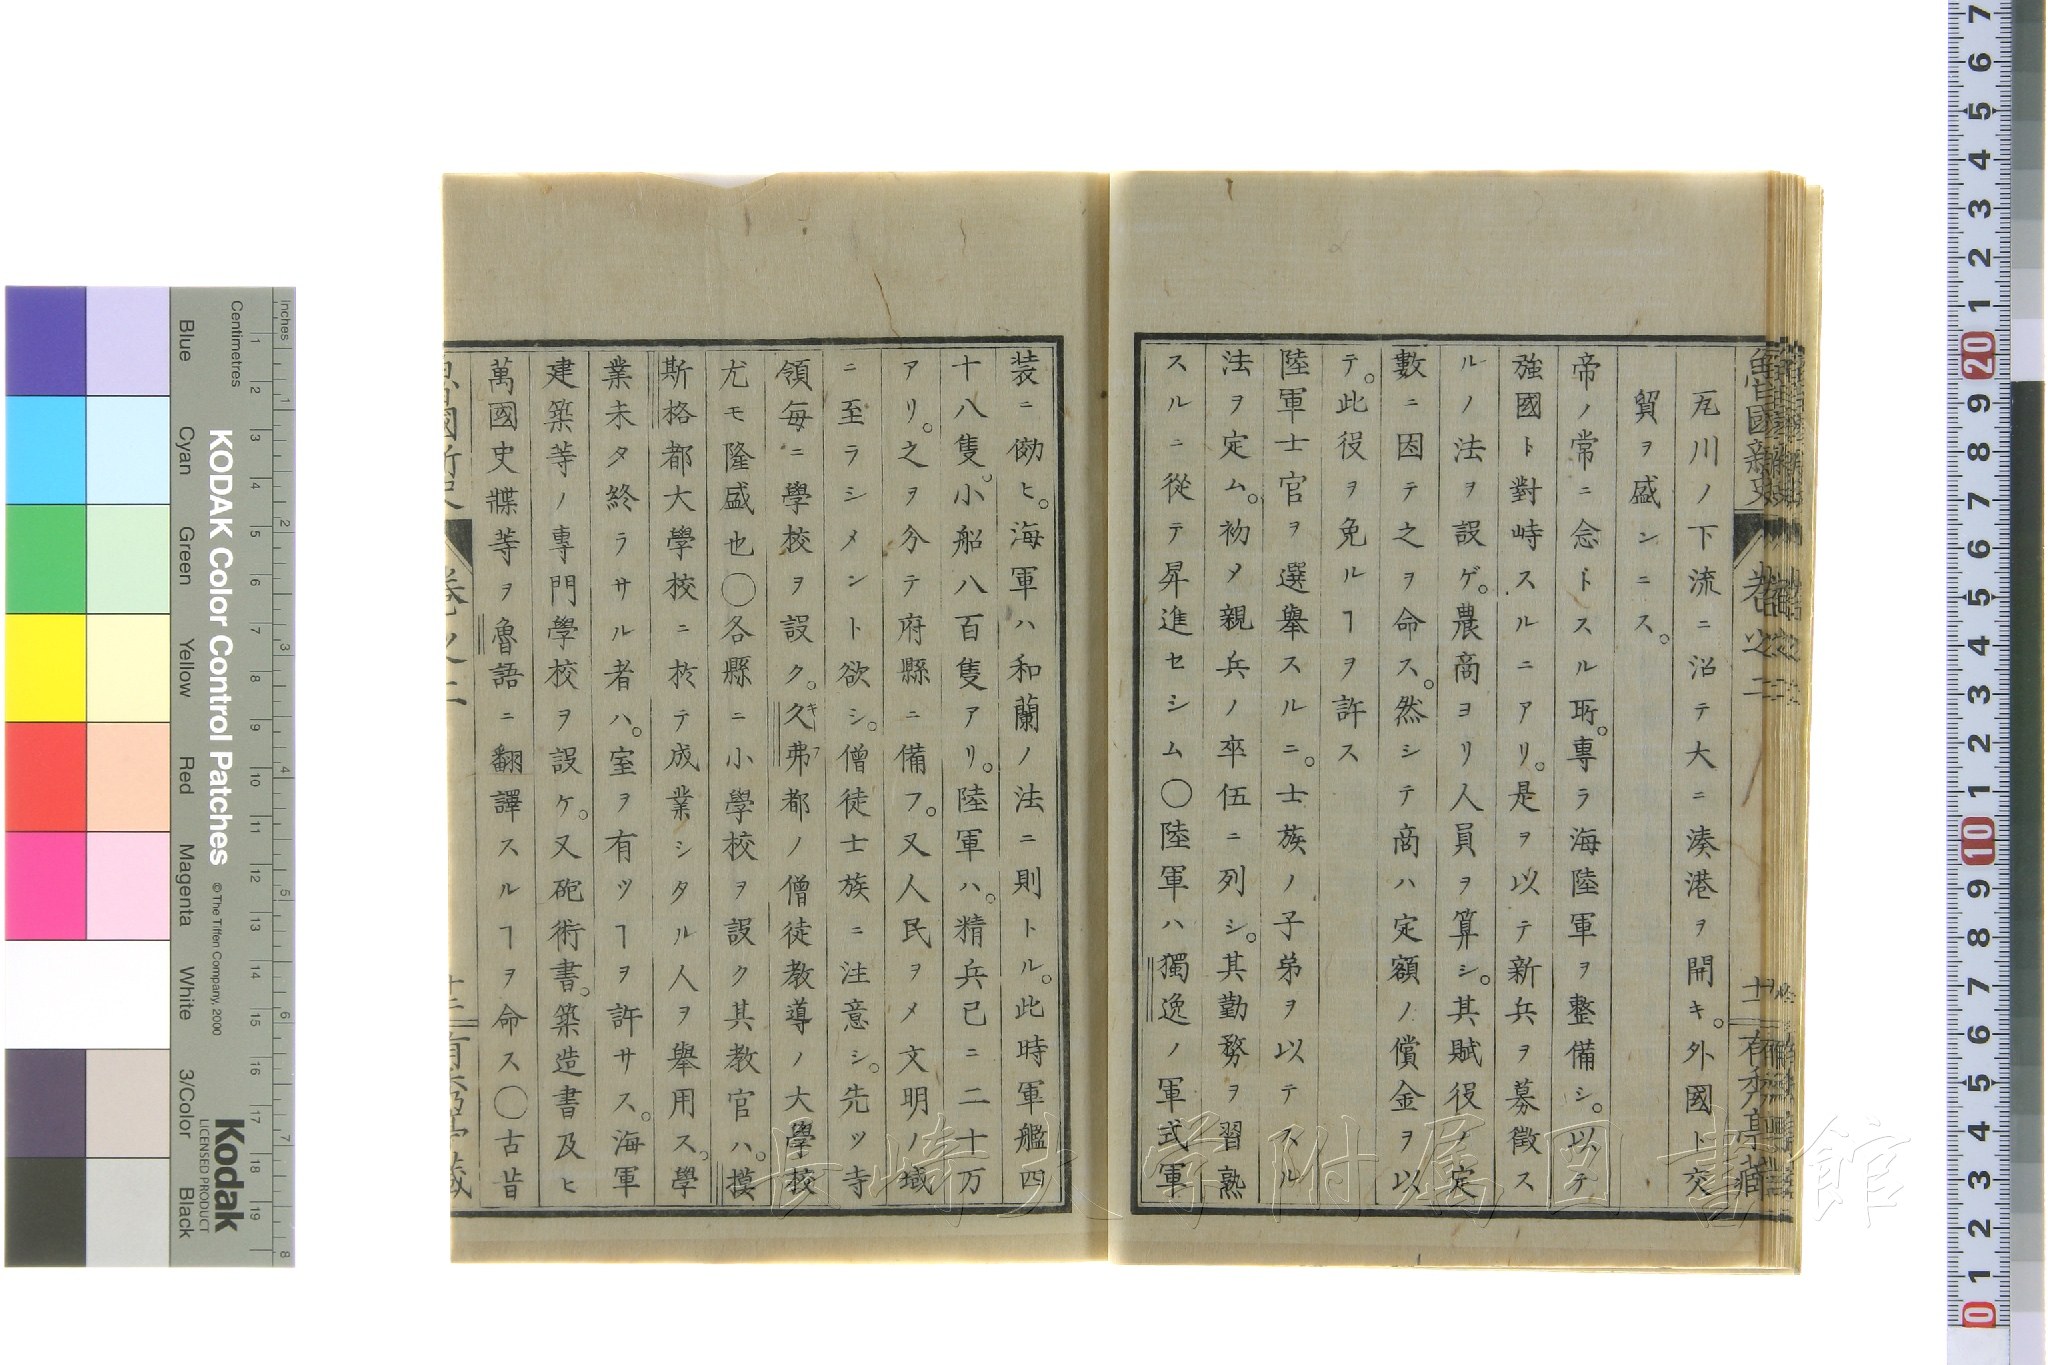 魯國新史
卷之二
十二
有爲亭藏
瓦川ノ下流ニ沿テ大ニ湊港ヲ開キ。外國ト交
貿ヲ盛ンニス。
帝ノ常ニ念トスル所。專ラ海陸軍ヲ整備シ。以テ
強國ト對峙スルニアリ。是ヲ以テ新兵ヲ募徵ス
ルノ法ヲ設ゲ。農商ヨリ人員ヲ算シ。其賦役ノ定
數ニ因テ之ヲ命ス。然シテ商ハ定額ノ償金ヲ以
テ。此役ヲ免ルヿヲ許ス
陸軍士官ヲ選舉スルニ。士族ノ子弟ヲ以テスル
法ヲ定ム。初メ親兵ノ卒伍ニ列シ。其勤務ヲ習熟
スルニ從テ昇進セシム〇陸軍ハ獨逸ノ軍式軍
装ニ傚ヒ。海軍ハ和蘭ノ法ニ則トル。此時軍艦四
十八隻。小船八百隻アリ。陸軍ハ。精兵已ニ二十万
アリ。之ヲ分テ府縣ニ備フ。又人民ヲメ文明ノ域
ニ至ラシメント欲シ。僧徒士族ニ注意シ。先ツ寺
領每ニ學校ヲ設ク。久弗都ノ僧徒教導ノ大學校
尤モ隆盛也〇各縣ニ小學校ヲ設ク其教官ハ。摸
斯格都大學校ニ於テ成業シタル人ヲ舉用ス。學
業未タ終ラサル者ハ。室ヲ有ツヿヲ許サス。海軍
建築等ノ專門學校ヲ設ケ。又砲術書。築造書及ヒ
萬國史牒等ヲ魯語ニ翻譯スルヿヲ命ス〇古昔
長崎大学附属図書館
KODAK Color Control Patches
© The Tiffen Company, 2000
Kodak
LICENSED PRODUCT
Inches
Centimetres
Blue
Cyan
Green
Yellow
Red
Magenta
White
3/Color
Black